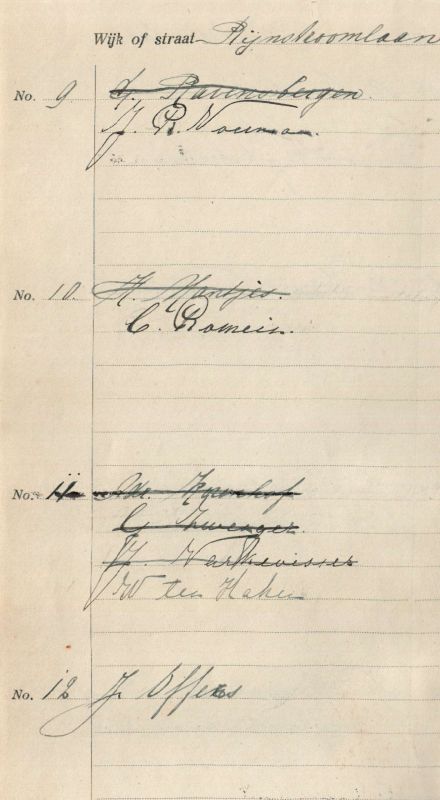 Wijk of straat Rijnstroomlaan
No. 9 J. Ravensbergen.
J. R. Nouman.
No. 10. H. Montjes.
C. Romein.
No. 11
C. Zwenger.
J. Varkevisser
W ten Haken
No. 12 J. Offers